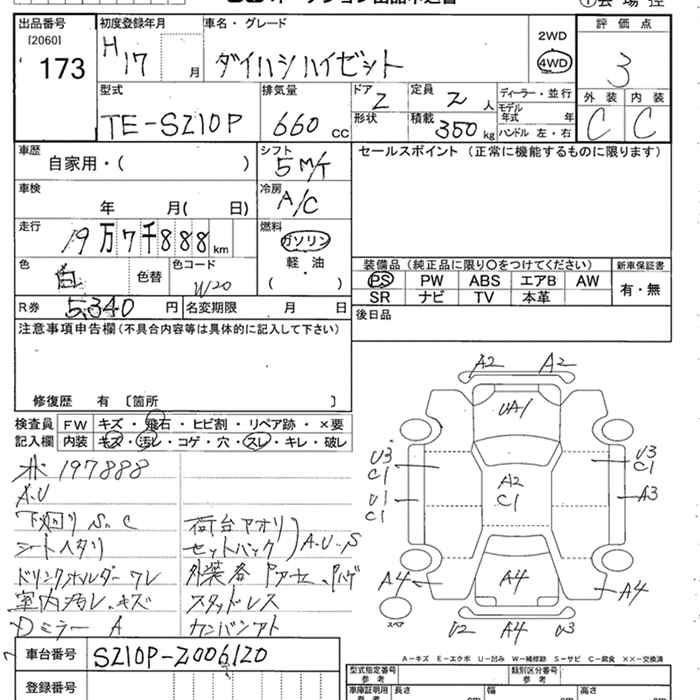 出品番号
[2060]
173
初度登録年月
H17 月
車名・グレード
ダイハツハイゼット
2WD
4WD
評価点
3
外装 内装
C C
型式
TE-S210P
排気量
660 cc
ドア 2
形状
定員 2 人
積載 350 kg
ディーラー・並行
モデル年式 年
ハンドル 左・右
車歴
自家用・( )
シフト
5M/T
セールスポイント (正常に機能するものに限ります)
車検
年 月( 日)
冷房
A/C
走行
19万7千888 km
燃料
ガソリン
軽・油
( )
色
白 色替
色コード
W20
装備品 (純正品に限り○をつけてください)
新車保証書
PS PW ABS エアB AW
SR ナビ TV 本革
有・無
R券 5,340 円
名変期限 月 日
後日品
注意事項申告欄(不具合内容等は具体的に記入して下さい)
修復歴 有 〔箇所 〕
検査員
記入欄
FW キズ・飛石・ヒビ割・リペア跡・×要
内装 キズ・汚レ・コゲ・穴・スレ・キレ・破レ
197888
A.U
下廻り S.C
シートヘタリ
ドリンクホルダーワレ
室内汚レ、キズ
Dミラー A
荷台アオリ
セットバック
A.U.S
スタッドレス
カンバンアト
A2 A2
UA1
U3
C1
U1
C1
A2
C1
U3
C1
A3
A4 A4 A4
スペア
U2 A4 U3
A-キズ E-エクボ U-凹み W-補修跡 S-サビ C-腐食 XX-交換済
車台番号 S210P-2006120
登録番号
型式指定番号
参考
類別区分番号
参考
車庫証明用
参考
長さ 幅 高さ